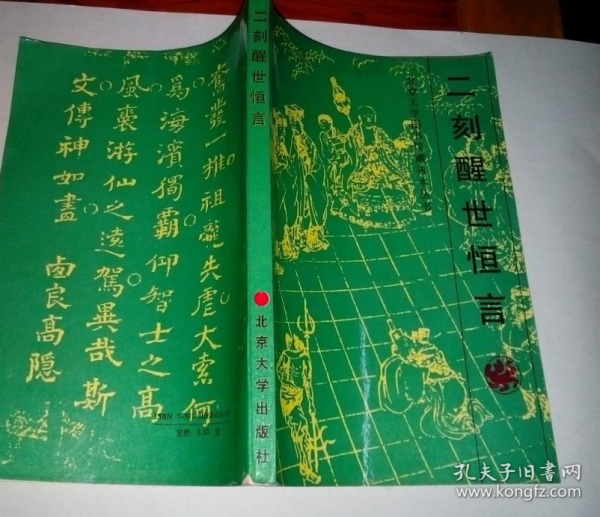 二刻醒世恒言
二刻醒世恒言
北京大学出版社
奮發一推祖龍失虎大索何
爲海濱獨霸仰智士之高
風裏游仙之遠駕異哉斯
文傳神如畫
卤良高隐
ISBN 7-301-
定价: 3.85 元
孔夫子旧书网
www.kongfz.com